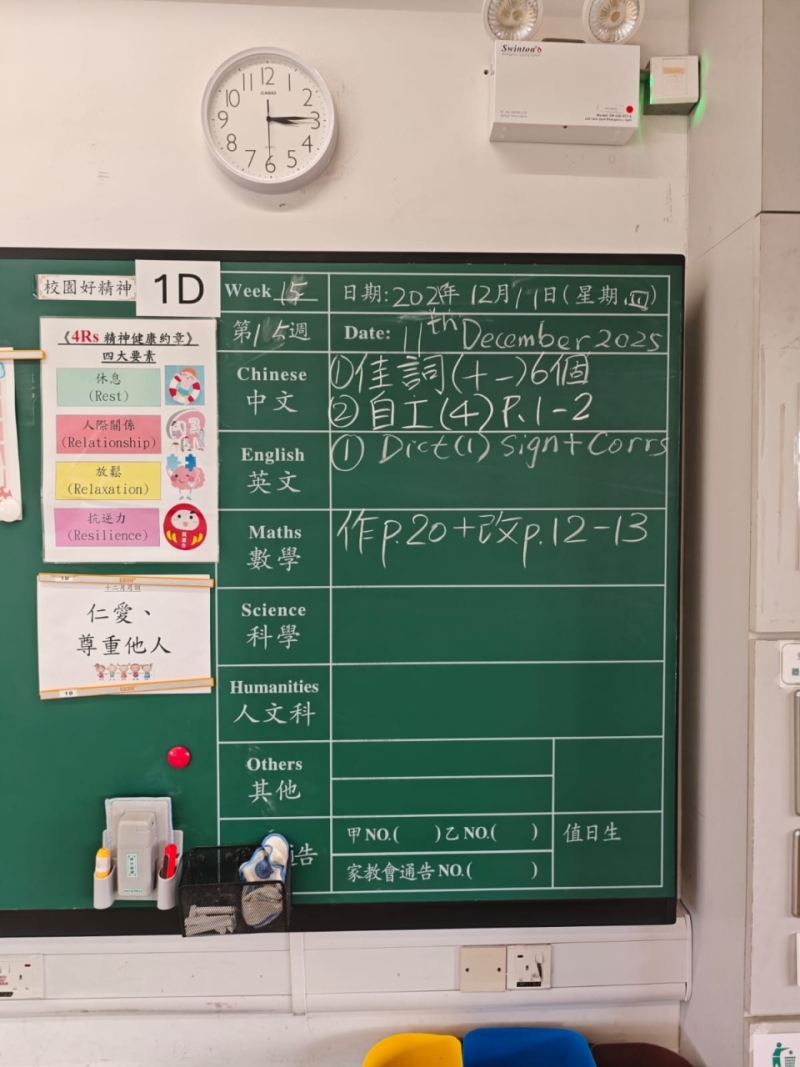 12
11
1
10
2
9
3
8
4
7
5
6
CASIO
Swinton
校園好精神
1D
《4Rs 精神健康約章》
四大要素
休息
(Rest)
人際關係
(Relationship)
放鬆
(Relaxation)
抗逆力
(Resilience)
十二月月訓
仁愛、
尊重他人
1D
1D
Week 15
日期: 2025年 12月11日(星期四)
第15週
Date: 11th December 2025
Chinese
中文
①佳詞(十一)6個
②自工(4)P.1-2
English
英文
① Dict(1) Sign+Corrs
Maths
數學
作p.20+改p.12-13
Science
科學
Humanities
人文科
Others
其他
告
甲NO.( )乙NO.( )
家教會通告NO.( )
值日生